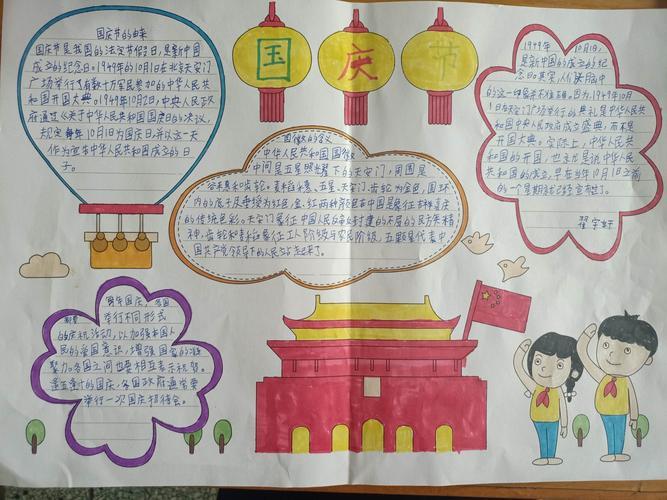 国庆节
国庆节的由来
国庆节是我国的法定节假日,是新中国
成立的纪念日。1949年的10月1日在北京天安门
广场举行了有数十万军民参加的中华人民共
和国开国大典。1949年10月2日,中央人民政
府通过《关于中华人民共和国国庆日的决议》,
规定每年10月1日为国庆日,并以这一天
作为宣布中华人民共和国成立的日
子。
国徽的含义
中华人民共和国国徽
中间是五星照耀下的天安门,周围是
谷穗和齿轮。麦稻穗、五星、天安门、齿轮为金色,圆环
内的底子及垂绶为红色。金、红两种颜色在中国是象征吉祥喜庆
的传统色彩。天安门象征中国人民反帝反封建的不屈的民族精
神;齿轮和麦稻穗象征工人阶级与农民阶级;五颗星代表中
国共产党领导下的人民大
1949年10月1日,
是新中国的成立的纪
念日。其实,人们头脑中
的这一印象并不准确。因为,1949年10月
1日在天安门广场举行的典礼是中华人民共
和国中央人民政府成立盛典,而不是
开国大典。实际上,中华人民共和
国的开国,也就是说中华人民共
和国的成立,早在当年10月1日之前
的一个星期就已经宣布了。
每年国庆,各国
都要举行不同形式
的庆祝活动,以加强本国人
民的爱国意识,增强国家的凝
聚力。各国之间也要相互表示祝贺。
逢五逢十的国庆,各国政府通常要
举行一次国庆招待会。